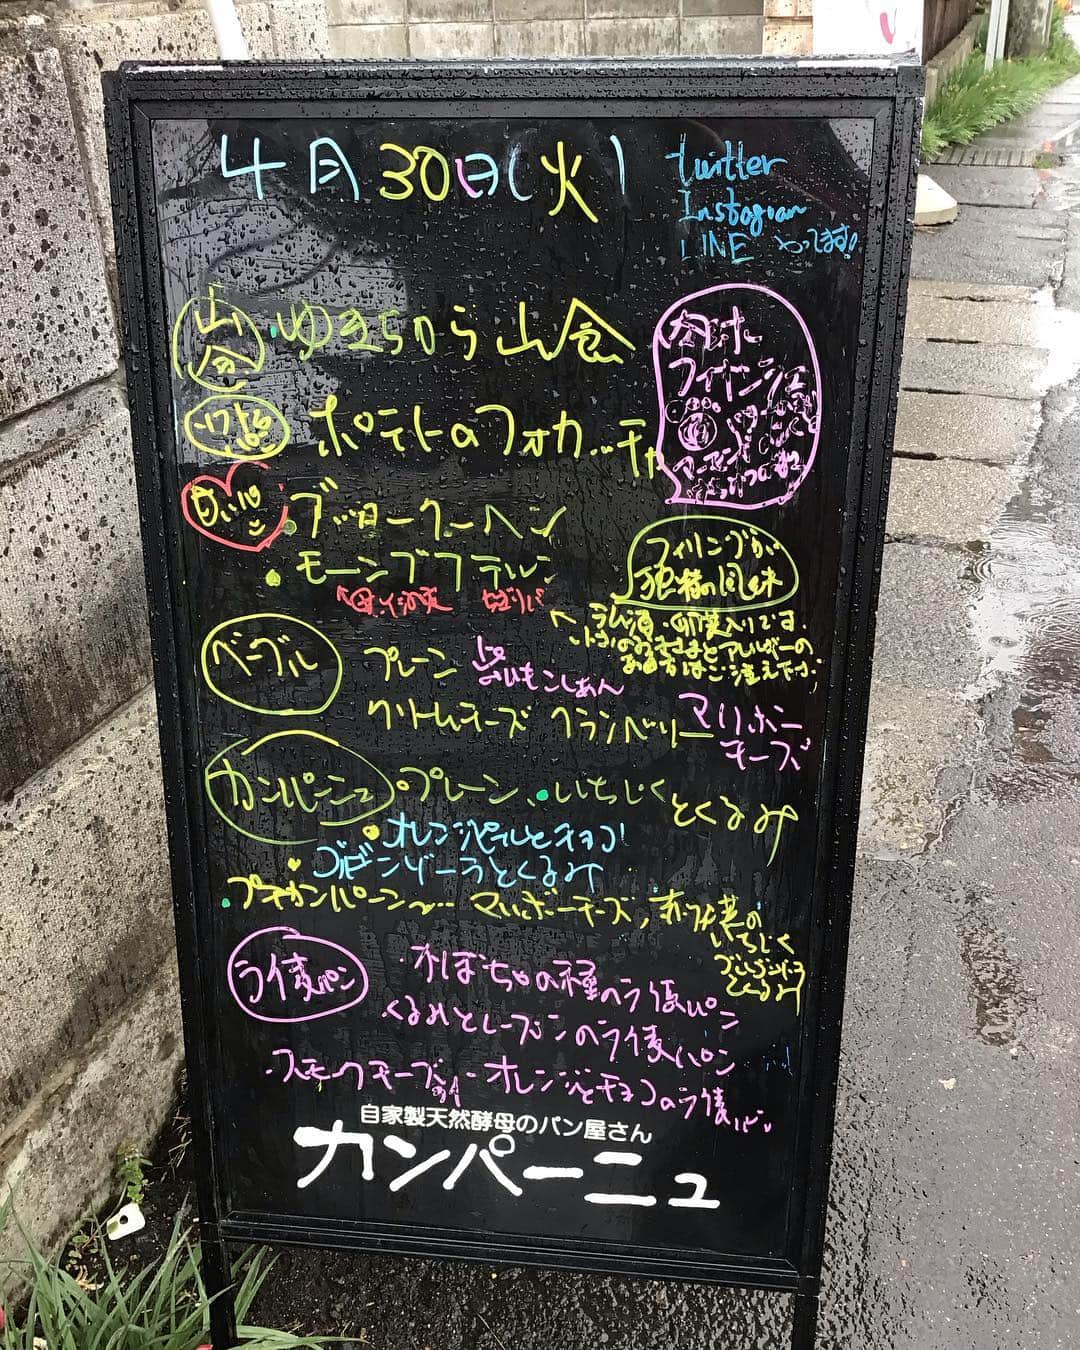 4月30日(火)
twitter
Instagram
LINE やってます!
山食
ゆきちから 山食
ポテトのフォカッチャ
フィナンシェ
白いパン
ブッタークーヘン
モーンブフテルン
フィリングが
独特の風味
ラム酒・卵 入りです。
お子さまとアレルギーの
ある方はご注意下さい
ベーグル
プレーン
おいもこしあん
クリームチーズ クランベリー
マリボー
チーズ
カンパーニュ
プレーン、いちじくとくるみ
オレンジピールとチョコ!
ゴルゴンゾーラとくるみ
プチカンパーニュ… マリボーチーズ, 赤ワイン漬の
いちじく
ゴルゴンゾーラ
とくるみ
ライ麦パン
かぼちゃの種のライ麦パン
くるみとレーズンのライ麦パン
スモークチーズ オレンジとチョコのライ麦パン
自家製天然酵母のパン屋さん
カンパーニュ